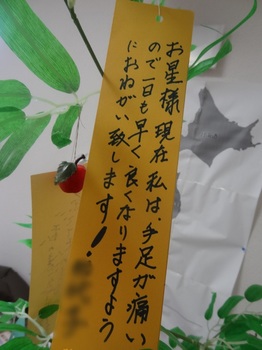 お星様現在私は、手足が痛い
ので一日も早く良くなりますよう
におねがい致します!